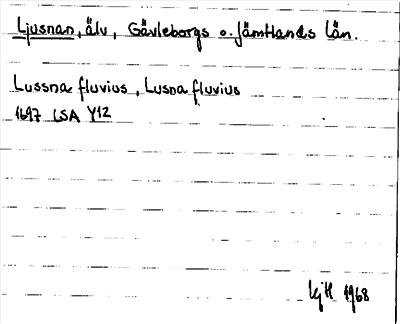 Ljusnan, älv, Gävleborgs o. Jämtlands län.
Lussna fluvius, Lusna fluvius
1697 LSA Y12
KjH 1968